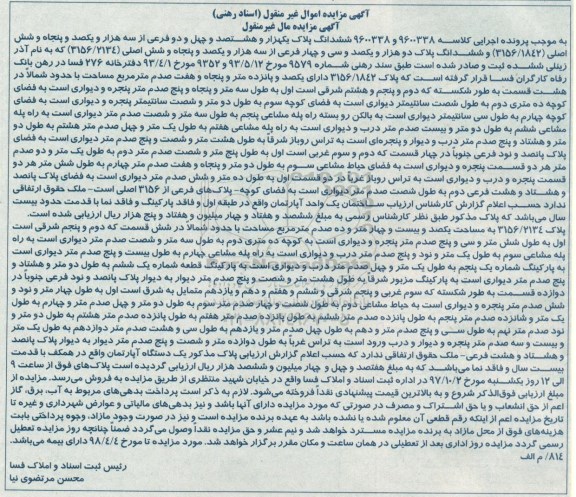 آگهی مزایده اموال غیر منقول (اسناد رهنی)
آگهی مزایده مال غیرمنقول
به موجب پرونده اجرایی کلاسه ۹۶۰۰۳۳۸ و ۹۶۰۰۳۳۸ ششدانگ پلاک یکهزار و هشتصد و چهل و دو فرعی از سه هزار و یکصد و پنجاه و شش
اصلی (۳۱۵۶/۱۸۴۲) و ششدانگ پلاک دو هزار و یکصد و سی و چهار فرعی از سه هزار و یکصد و پنجاه و شش اصلی (۳۱۵۶/۲۱۳۴) که به نام آذر
زینلی ششده ثبت و صادر شده است طبق سند رهنی شماره ۹۵۷۹ مورخ ۹۳/۵/۱۲ و ۹۳۵۲ مورخ ۹۳/۴/۱ دفترخانه ۲۷۶ فسا در رهن بانک
رفاه کارگران فسا قرار گرفته است که پلاک ۳۱۵۶/۱۸۴۲ دارای یکصد و پانزده متر و پنجاه و هفت صدم مترمربع مساحت با حدود شمالاً در
هشت قسمت به طور شکسته که دوم و پنجم و هشتم شرقی است اول به طول سه متر و پنجاه و پنج صدم متر پنجره و دیواری است به فضای
کوچه ده متری دوم به طول شصت سانتیمتر دیواری است به فضای کوچه سوم به طول دو متر و شصت سانتیمتر پنجره و دیواری است به فضای
کوچه چهارم به طول سی سانتیمتر دیواری است به بالکن رو بسته راه پله مشاعی پنجم به طول سه متر و شصت صدم متر دیواری است به راه پله
مشاعی ششم به طول دو متر و بیست صدم متر درب و دیواری است به راه پله مشاعی هفتم به طول یک متر و چهل صدم متر هشتم به طول دو
متر و هشتاد و پنج صدم متر درب و دیوار و پنجره‌ای است به تراس روباز شرقاً به طول هشت متر و شصت و پنج صدم متر دیواری است به فضای
پلاک پانصد و نود فرعی جنوباً در چهار قسمت که دوم و سوم غربی است اول به طول پنج متر و شصت صدم متر دوم به طول یک متر و دو صدم
متر هر دو قسمت پنجره و دیواری است به فضای حیاط مشاعی سوم به طول دو متر و پنجاه و هفت صدم متر چهارم به طول شش متر هر دو
قسمت پنجره و درب و دیواری است به تراس روباز غرباً در دو قسمت اول به طول ده متر و شش صدم متر دیواری است به فضای پلاک پانصد
و هشتاد و هشت فرعی دوم به طول شصت صدم متر دیواری است به فضای کوچه- پلاک‌های فرعی از ۳۱۵۶ اصلی است- ملک حقوق ارتفاقی
ندارد حسب اعلام گزارش کارشناس ارزیاب ساختمان یک واحد آپارتمان واقع در طبقه اول و فاقد پارکینگ و فاقد نما با قدمت حدود بیست
سال می‌باشد که پلاک مذکور طبق نظر کارشناس رسمی به مبلغ ششصد و هفتاد و چهار میلیون و هفتاد و پنج هزار ریال ارزیابی شده است.
پلاک ۳۱۵۶/۲۱۳۴ به مساحت یکصد و بیست و چهار متر و ده صدم مترمربع مساحت با حدود شمالاً در شش قسمت که دوم و پنجم شرقی است
اول به طول شش متر و سی و پنج صدم متر پنجره و دیواری است به کوچه ده متری دوم به طول سه متر و شصت صدم متر دیواری است به راه
پله مشاعی سوم به طول یک متر و نود و پنج صدم متر درب و دیواری است به راه پله مشاعی چهارم به طول بیست و پنج صدم متر دیواری است
به پارکینگ شماره یک پنجم به طول یک متر و چهل صدم متر درب و دیواری است به پارکینگ قطعه شماره یک ششم به طول دو متر و هشتاد و
پنج صدم متر دیواری است به پارکینگ مزبور شرقاً به طول هشت متر و شصت و پنج صدم متر دیوار به دیوار پلاک پانصد و نود فرعی جنوباً در
دوازده قسمت به طور شکسته که سوم غربی و پنجم شرقی و ششم و هفتم و دهم و یازدهم متمایل به شرق است اول به طول چهار متر و نود و
شش صدم متر پنجره و دیواری است به حیاط مشاعی دوم به طول شصت و چهار صدم متر سوم به طول دو متر و چهل صدم متر و چهارم به طول
یک متر و شانزده صدم متر پنجم به طول پانزده صدم متر ششم به طول پانزده صدم متر هفتم به طول پانزده صدم متر هشتم به طول دو متر و
نود صدم متر نهم به طول سی و پنج صدم متر و دهم به طول چهل صدم متر و یازدهم به طول سی و هشت صدم متر دوازدهم به طول یک متر
و بیست و سه صدم متر پنجره و دیوار و درب ورود است به تراس غرباً به طول دوازده متر و شصت و پنج صدم متر دیوار به دیوار پلاک پانصد
و هشتاد و هشت فرعی- ملک حقوق ارتفاقی ندارد که حسب اعلام گزارش ارزیابی پلاک مذکور یک دستگاه آپارتمان واقع در همکف با قدمت
بیست سال و فاقد نما می‌باشد که به مبلغ هفتصد و چهل و چهار میلیون و ششصد هزار ریال ارزیابی گردیده است پلاک‌های فوق از ساعت ۹
الی ۱۲ روز یکشنبه مورخ ۹۷/۱۰/۲ در اداره ثبت اسناد و املاک فسا واقع در خیابان شهید منتظری از طریق مزایده به فروش می‌رسد. مزایده از
مبلغ ارزیابی فوق‌الذکر شروع و به بالاترین قیمت پیشنهادی نقداً فروخته می‌شود. لازم به ذکر است پرداخت بدهی‌های مربوط به آب، برق، گاز
اعم از حق انشعاب و یا حق اشتراک و مصرف در صورتی که مورد مزایده دارای آنها باشد و نیز بدهی‌های مالیاتی و عوارض شهرداری و غیره تا
تاریخ مزایده اعم از اینکه رقم قطعی آن معلوم شده یا نشده باشد به عهده برنده مزایده است و نیز در صورت وجود مازاد، وجوه پرداختی بابت
هزینه‌های فوق از محل مازاد به برنده مزایده مسترد خواهد شد و نیم عشر و حق مزایده نقداً وصول می‌گردد ضمناً چنانچه روز مزایده تعطیل
رسمی گردد مزایده روز اداری بعد از تعطیلی در همان ساعت و مکان مقرر برگزار خواهد شد. مورد مزایده تا مورخ ۹۸/۴/۴ دارای بیمه می‌باشد.
۸۱۴/ م الف
رئیس ثبت اسناد و املاک فسا
محسن مرتضوی نیا